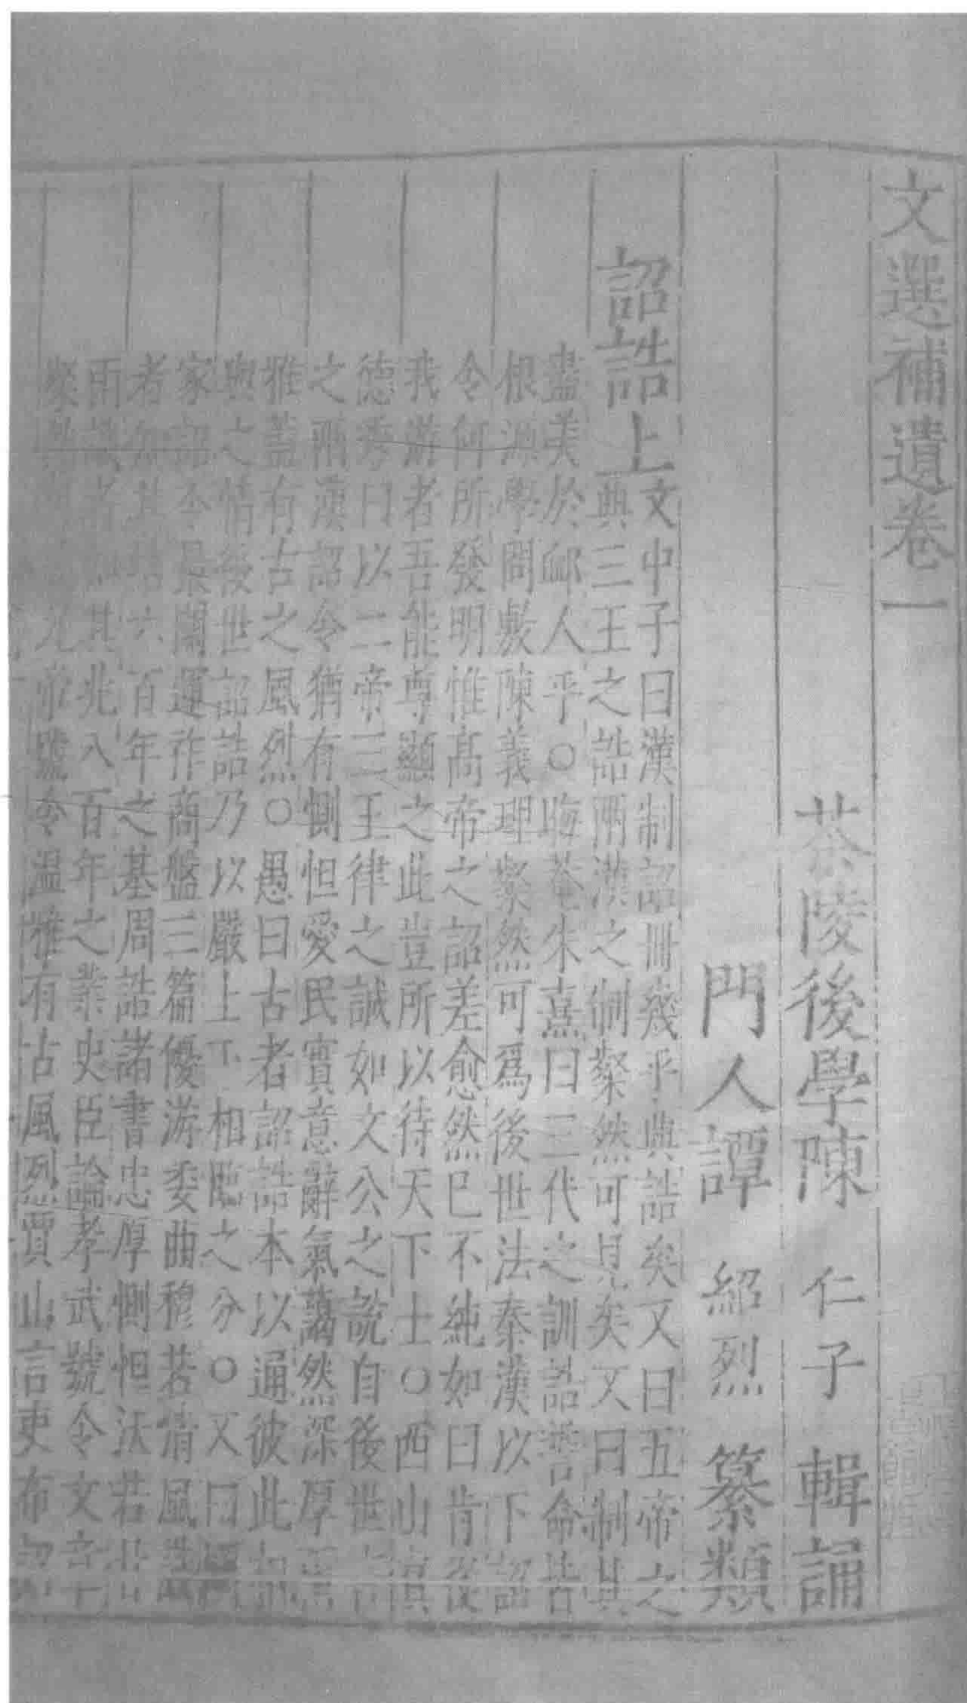 文選補遺卷一
茶陵後學陳 仁子 輯誦
門人譚 紹烈 纂類
詔誥上
文中子曰漢制詔冊幾乎典誥矣又曰五帝之
典三王之誥兩漢之制粲然可見矣又曰制其
盡美於邮人乎○晦菴朱熹曰三代之訓誥誓命皆
根源學問敷陳義理粲然可爲後世法秦漢以下詔
令何所發明惟高帝之詔差愈然已不純如曰肯從
我游者吾能尊顯之此豈所以待天下士○西山真
德秀曰以二帝三王律之誠如文公之說自後世言
之兩漢詔令猶有惻怛愛民實意辭氣藹然深厚
雅蓋有古之風烈○愚曰古者詔誥本以通彼此
之情後世詔誥乃以嚴上下相臨之分○又曰
家詔令最關運祚商盤三篇優游委曲穆若清風
者如其培六百年之基周誥諸書忠厚惻怛沃若
雨識者知其兆八百年之業史臣論孝武號令文章
帝號令溫雅有古風烈賈山言吏布詔